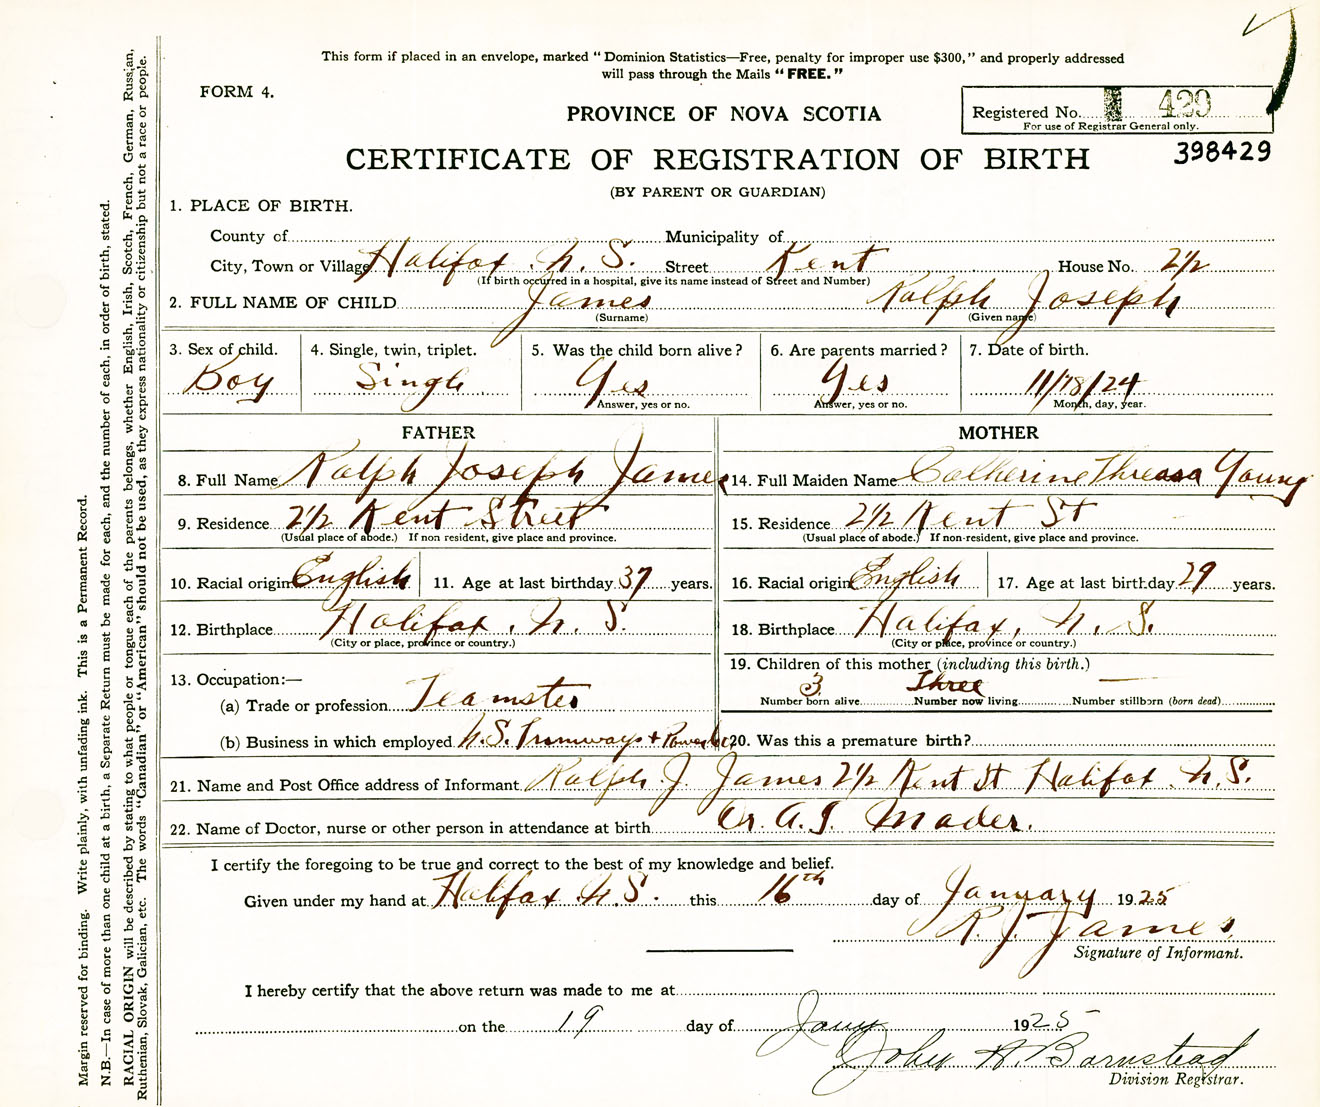 This form if placed in an envelope, marked "Dominion Statistics—Free, penalty for improper use $300," and properly addressed
will pass through the Mails "FREE."
FORM 4.
PROVINCE OF NOVA SCOTIA
Registered No. 429
For use of Registrar General only.
CERTIFICATE OF REGISTRATION OF BIRTH
398429
(BY PARENT OR GUARDIAN)
1. PLACE OF BIRTH.
County of Municipality of
City, Town or Village Halifax. N. S. Street Kent House No. 2½
(If birth occurred in a hospital, give its name instead of Street and Number)
2. FULL NAME OF CHILD James Ralph Joseph
(Surname) (Given name)
3. Sex of child. 4. Single, twin, triplet. 5. Was the child born alive? 6. Are parents married? 7. Date of birth.
Boy Single Yes Yes 11/18/24
Answer, yes or no. Answer, yes or no. Month, day, year.
FATHER MOTHER
8. Full Name Ralph Joseph James 14. Full Maiden Name Catherine Young
9. Residence 2½ Kent Street 15. Residence 2½ Kent St
(Usual place of abode.) If non resident, give place and province. (Usual place of abode.) If non-resident, give place and province.
10. Racial origin English 11. Age at last birthday 37 years. 16. Racial origin English 17. Age at last birthday 29 years.
12. Birthplace Halifax. N. S. 18. Birthplace Halifax, N. S.
(City or place, province or country.) (City or place, province or country.)
19. Children of this mother (including this birth.)
13. Occupation:—
3 Three —
(a) Trade or profession Teamster Number born alive Number now living Number stillborn (born dead)
(b) Business in which employed N.S. Tramways + Power 20. Was this a premature birth?
21. Name and Post Office address of Informant Ralph J. James 2½ Kent St Halifax. N. S.
22. Name of Doctor, nurse or other person in attendance at birth Dr. A. I. Mader.
I certify the foregoing to be true and correct to the best of my knowledge and belief.
Given under my hand at Halifax N. S. this 16th day of January 1925
R. J. James.
Signature of Informant.
I hereby certify that the above return was made to me at
on the 19 day of Jany 1925
John A. Barnstead
Division Registrar.
Margin reserved for binding. Write plainly, with unfading ink. This is a Permanent Record.
N.B.—In case of more than one child at a birth, a Separate Return must be made for each, and the number of each, in order of birth, stated.
RACIAL ORIGIN will be described by stating to what people or tongue each of the parents belongs, whether English, Irish, Scotch, French, German, Russian,
Ruthenian, Slovak, Galician, etc. The words "Canadian" or "American" should not be used, as they express nationality or citizenship but not a race or people.